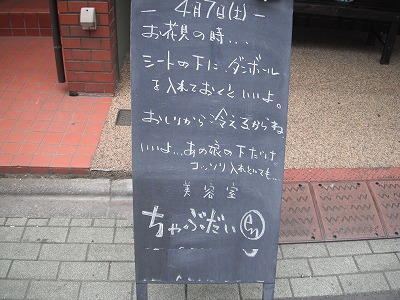 4月7日(土)
お花見の時...
シートの下に ダンボール
を入れておくといいよ。
おしりから冷えるからね
いいよ...あの娘の下だけ
コッソリ入れといても...
美容室
ちゃぶだい